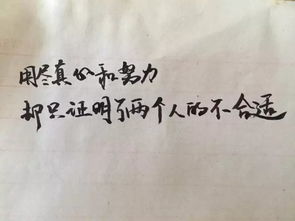 用尽真心和努力
却只证明了两个人的不合适